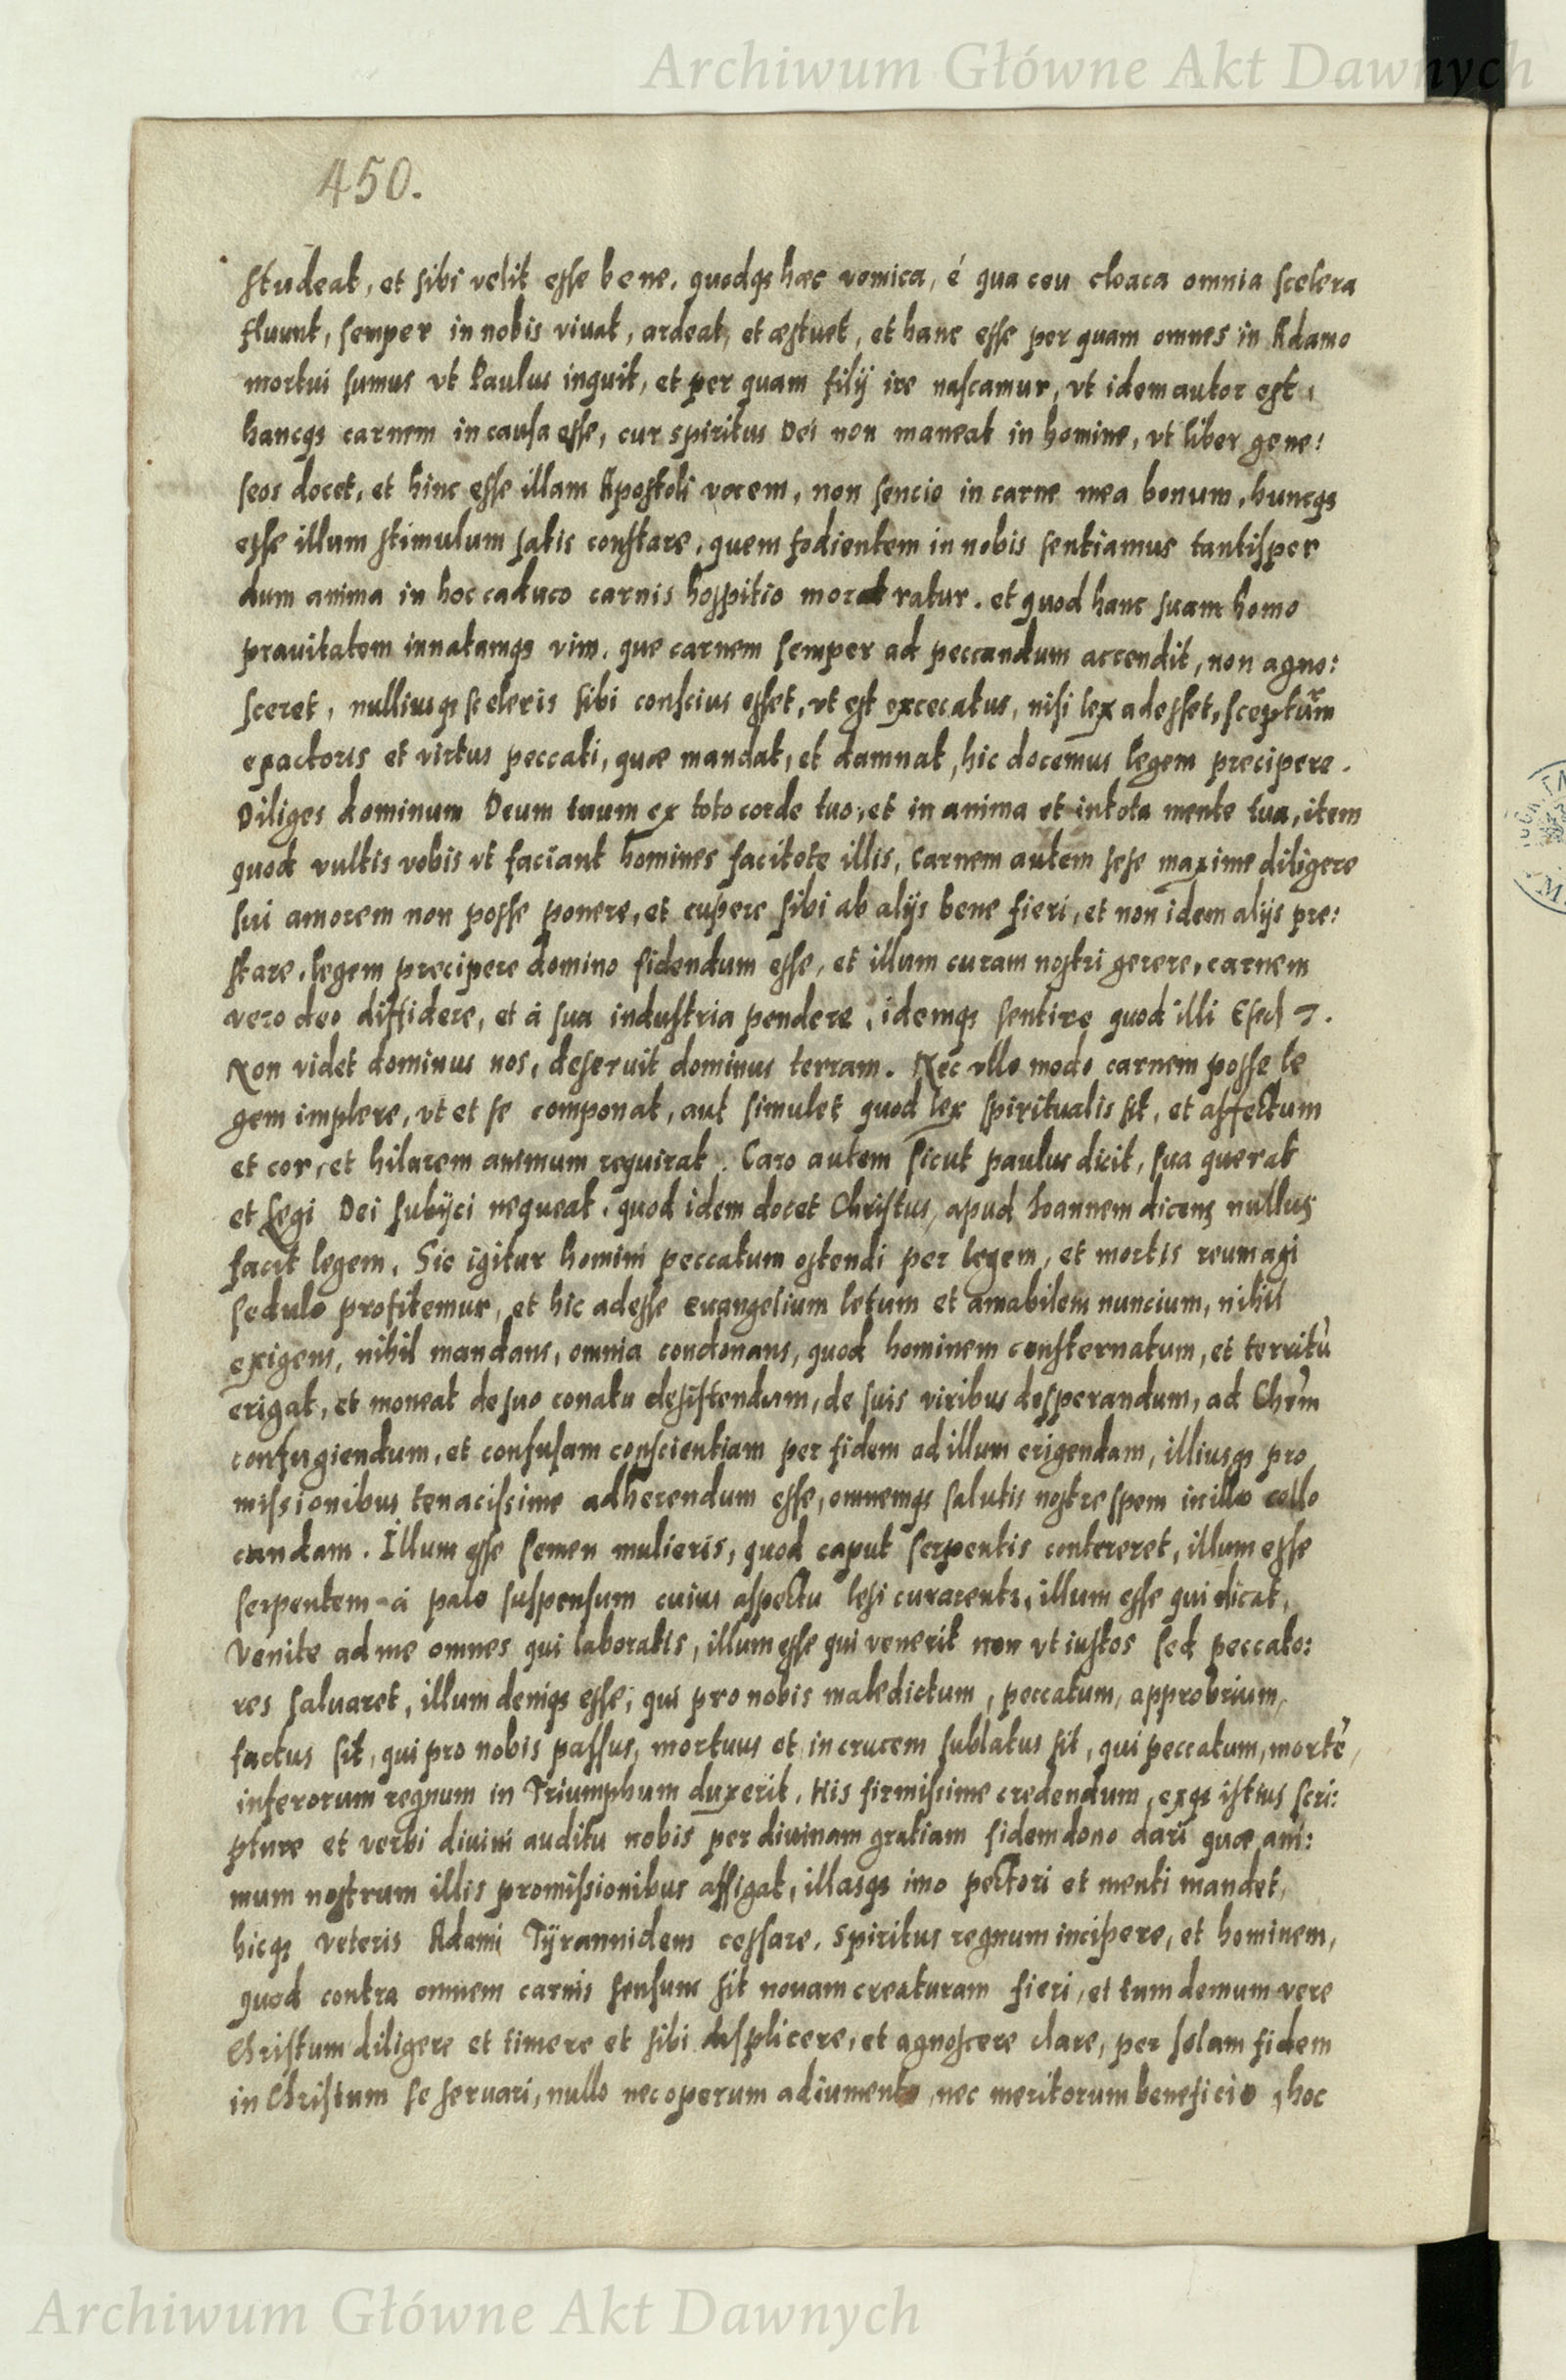 Archiwum Główne Akt Dawnych
450.
studeat, et sibi velit esse bene. quodqs hæc vomica, é qua ceu cloaca omnia scelera
fluunt, semper in nobis viuat, ardeat, et æstuet, et hanc esse per quam omnes in Adamo
mortui sumus vt Paulus inquit, et per quam filij ire nascamur, vt idem autor est,
hancqs carnem in causa esse, cur spiritus Dei non maneat in homine, vt liber gene:
seos docet, et hinc esse illam Apostoli vocem, non sencio in carne mea bonum, huncqs
esse illum stimulum satis constare, quem fodientem in nobis sentiamus tantisper
dum anima in hoc caduco carnis hospitio ratur. et quod hanc suam homo
prauitatem innatamqs vim. que carnem semper ad peccandum accendit, non agno:
sceret, nulliusqs sceleris sibi conscius esset, vt est excecatus, nisi lex adesset, sceptrum
exactoris et virtus peccati, quæ mandat, et damnat, hic docemus legem precipere.
Diliges dominum Deum tuum ex toto corde tuo, et in anima et in tota mente tua, item
quod vultis vobis vt faciant homines facitote illis, Carnem autem sese maxime diligere
sui amorem non posse ponere, et cupere sibi ab alijs bene fieri, et non idem alijs pre:
stare, legem precipere domino fidendum esse, et illum curam nostri gerere, carnem
vero deo diffidere, et á sua industria pendere, idemqs sentire quod illi Esech 7.
Non videt dominus nos, deseruit dominus terram. Nec vllo modo carnem posse le
gem implere, vt et se componat, aut simulet quod lex spiritualis sit, et affectum
et cor, et hilarem animum requirat. Caro autem sicut paulus dicit, sua querat
et Legi Dei subijci nequeat, quod idem docet Christus, apud Ioannem dicens nullus
facit legem. Sic igitur homini peccatum ostendi per legem, et mortis reum agi
sedulo profitemur, et hic adesse euangelium letum et amabilem nuncium, nihil
exigens, nihil mandans, omnia condonans, quod hominem consternatum, et territũ
erigat, et moneat de suo conatu desistendum, de suis viribus desperandum, ad Chr̃m
confugiendum, et confusam conscientiam per fidem ad illum erigendam, illiusqs pro
missionibus tenacissime adherendum esse, omnemqs salutis nostre spem in illo collo
candam. Illum esse semen mulieris, quod caput serpentis contereret, illum esse
serpentem á palo suspensum cuius aspectu lesi curarentr, illum esse qui dicat,
Venite ad me omnes qui laboratis, illum esse qui venerit non vt iustos sed peccato:
res saluaret, illum deniqs esse, qui pro nobis maledictum, peccatum, approbrium,
factus sit, qui pro nobis passus, mortuus et in crucem sublatus sit, qui peccatum, mortẽ,
inferorum regnum in Triumphum duxerit. His firmissime credendum, exqs istius scri:
pture et verbi diuini auditu nobis per diuinam gratiam fidem dono dari quæ ani:
mum nostrum illis promissionibus affigat, illasqs imo pectori et menti mandet,
hicqs veteris Adami Tÿrannidem cessare, spiritus regnum incipere, et hominem,
quod contra omnem carnis sensum sit nouam creaturam fieri, et tum demum vere
Christum diligere et timere et sibi displicere, et agnoscere clare, per solam fidem
in Christum se seruari, nullo nec operum adiumento, nec meritorum beneficio, hoc
Archiwum Główne Akt Dawnych